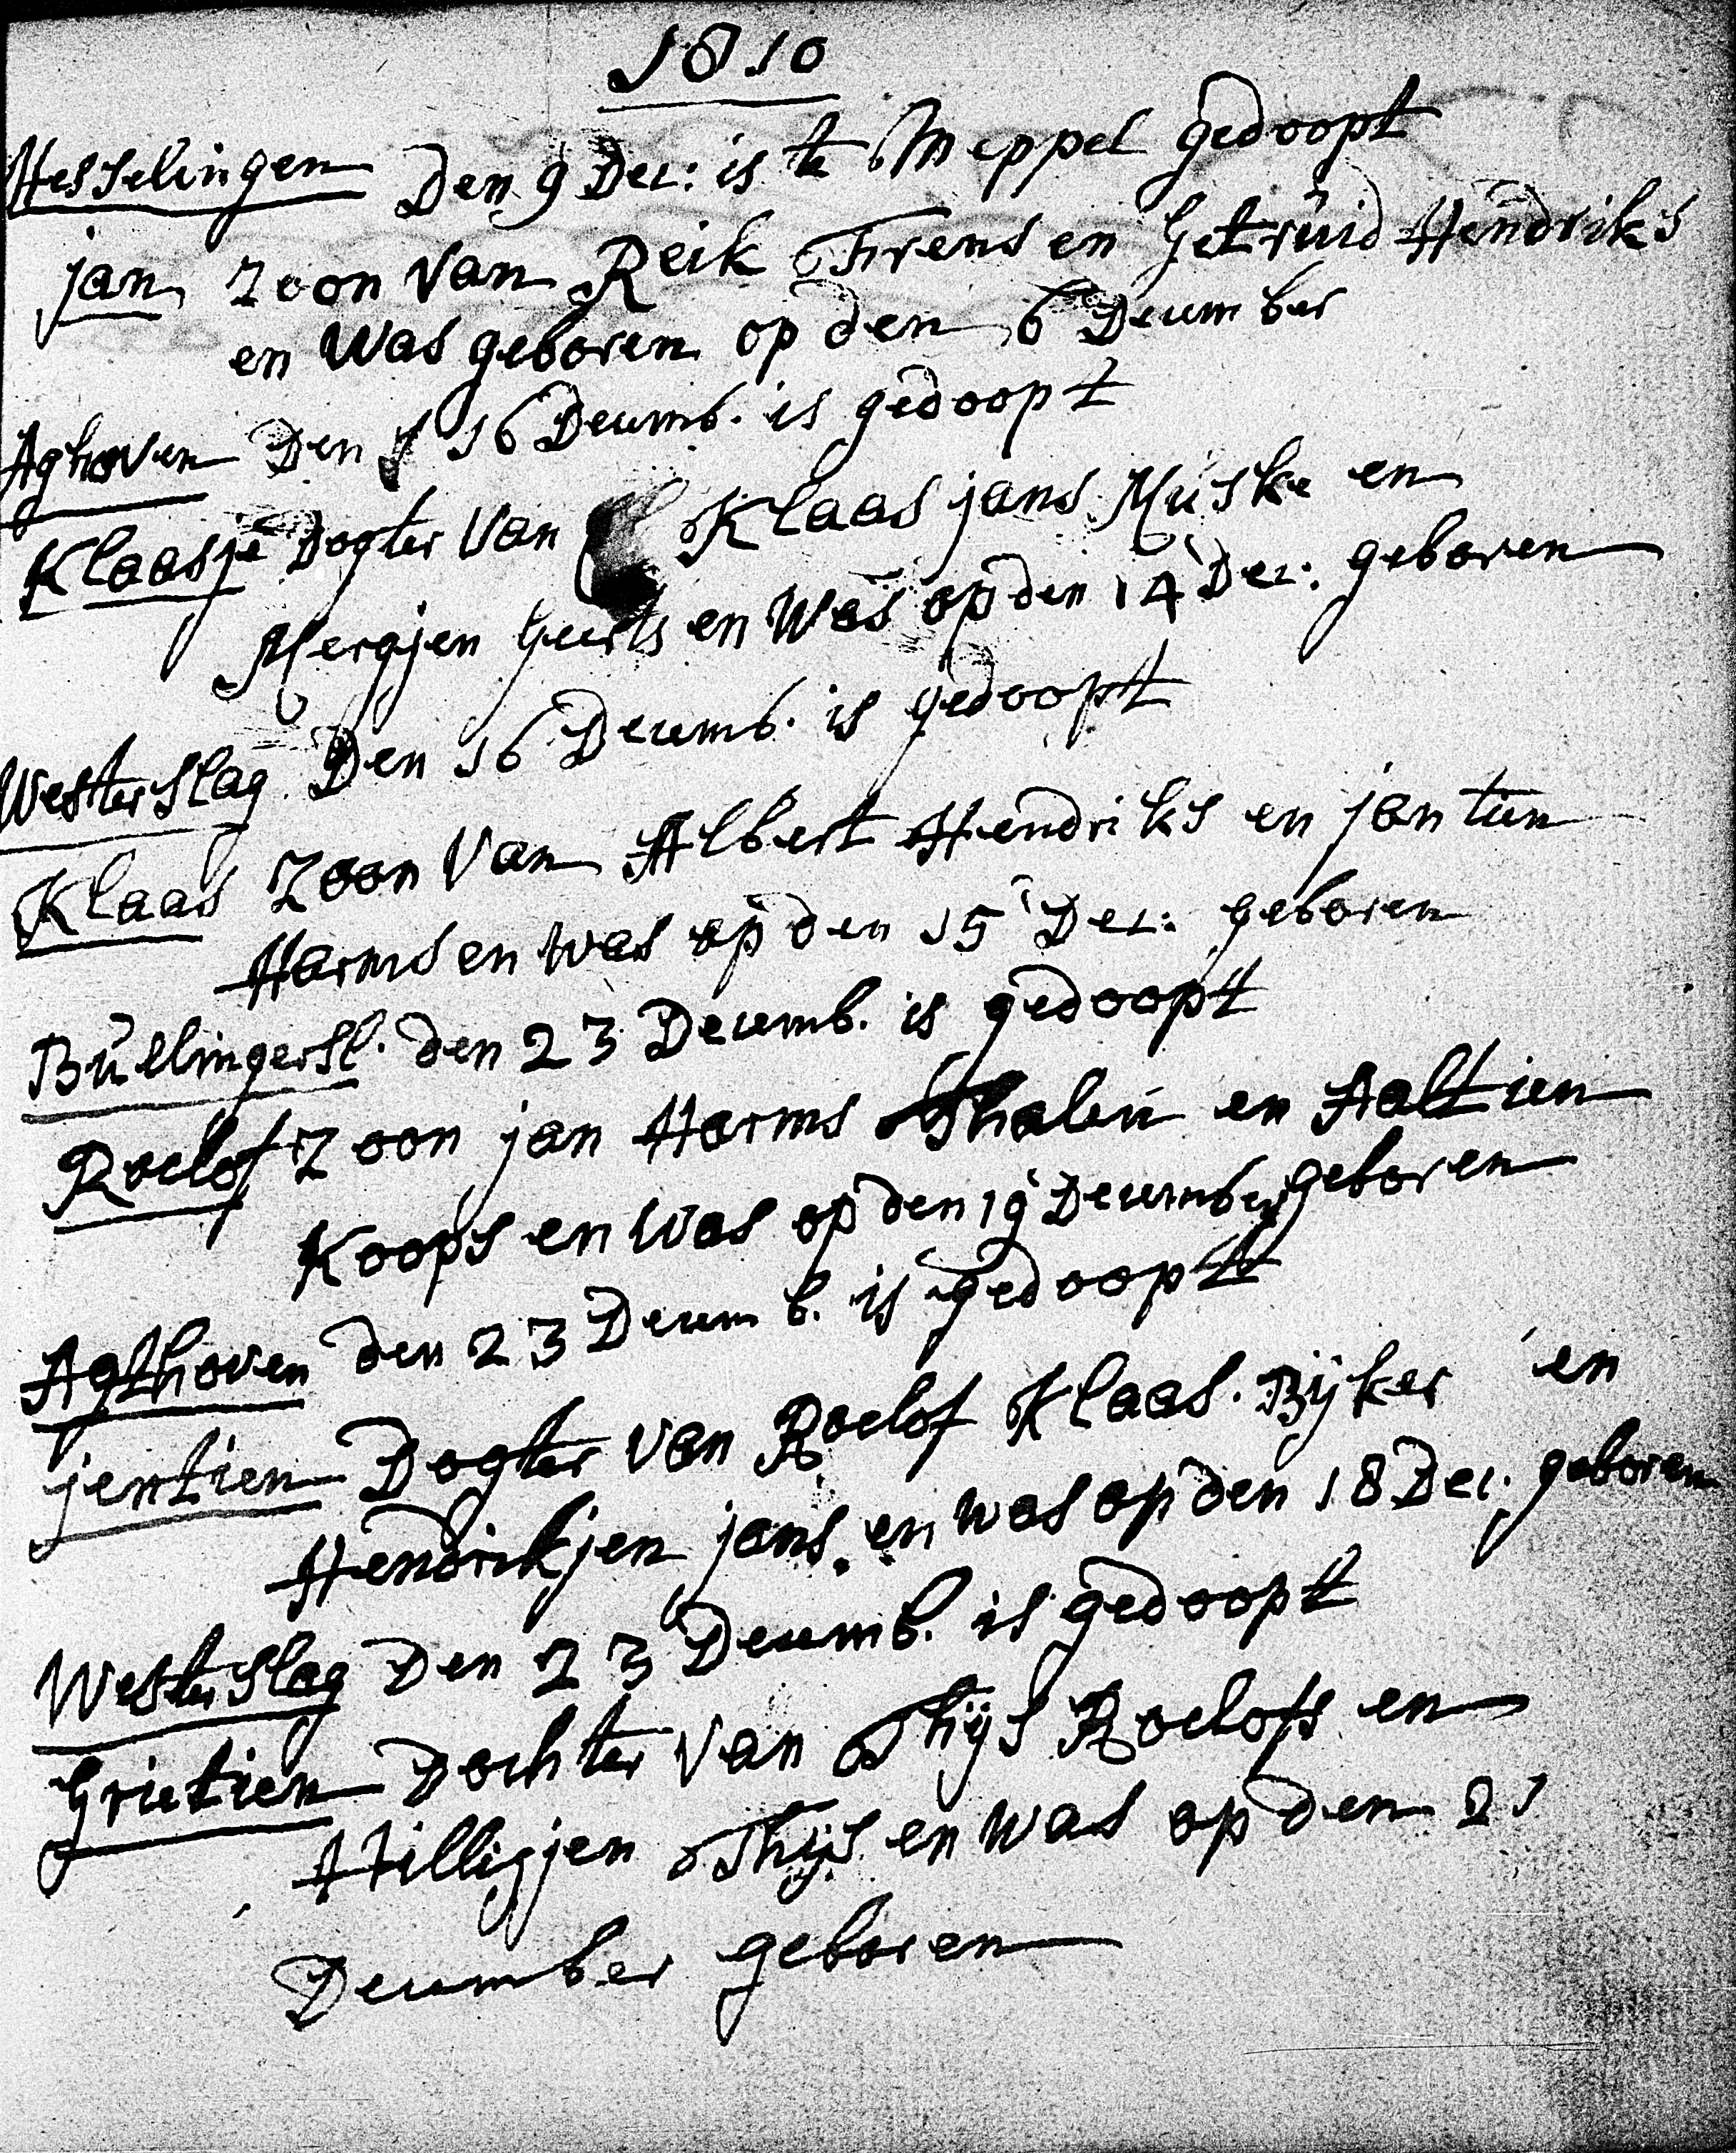 1810
Hesselingen Den 9 Dec: is te Meppel gedoopt
jan zoon van Reik Frens en Getruid Hendriks
en was geboren op den 6 December
Aghoven Den 16 Decemb. is gedoopt
Klaasje Dogter van Klaas jans Muske en
Mergjen Geerts en was op den 14 Dec: geboren
Westerslag Den 16 Decemb. is gedoopt
Klaas zoon van Albert Hendriks en jantien
Harms en was op den 15 Dec: geboren
Bullingersl. den 23 Decemb. is gedoopt
Roelof zoon jan Harms Thalen en Aaltien
Koops en was op den 19 December geboren
Agthoven den 23 Decemb. is gedoopt
jentien Dogter van Roelof Klaas Bijker en
Hendrikjen jans. en was op den 18 Dec. geboren
Westerslag Den 23 Decemb. is gedoopt
Grietien Dochter van Thijs Roelofs en
Hilligjen Thijs en was op den 21
December geboren